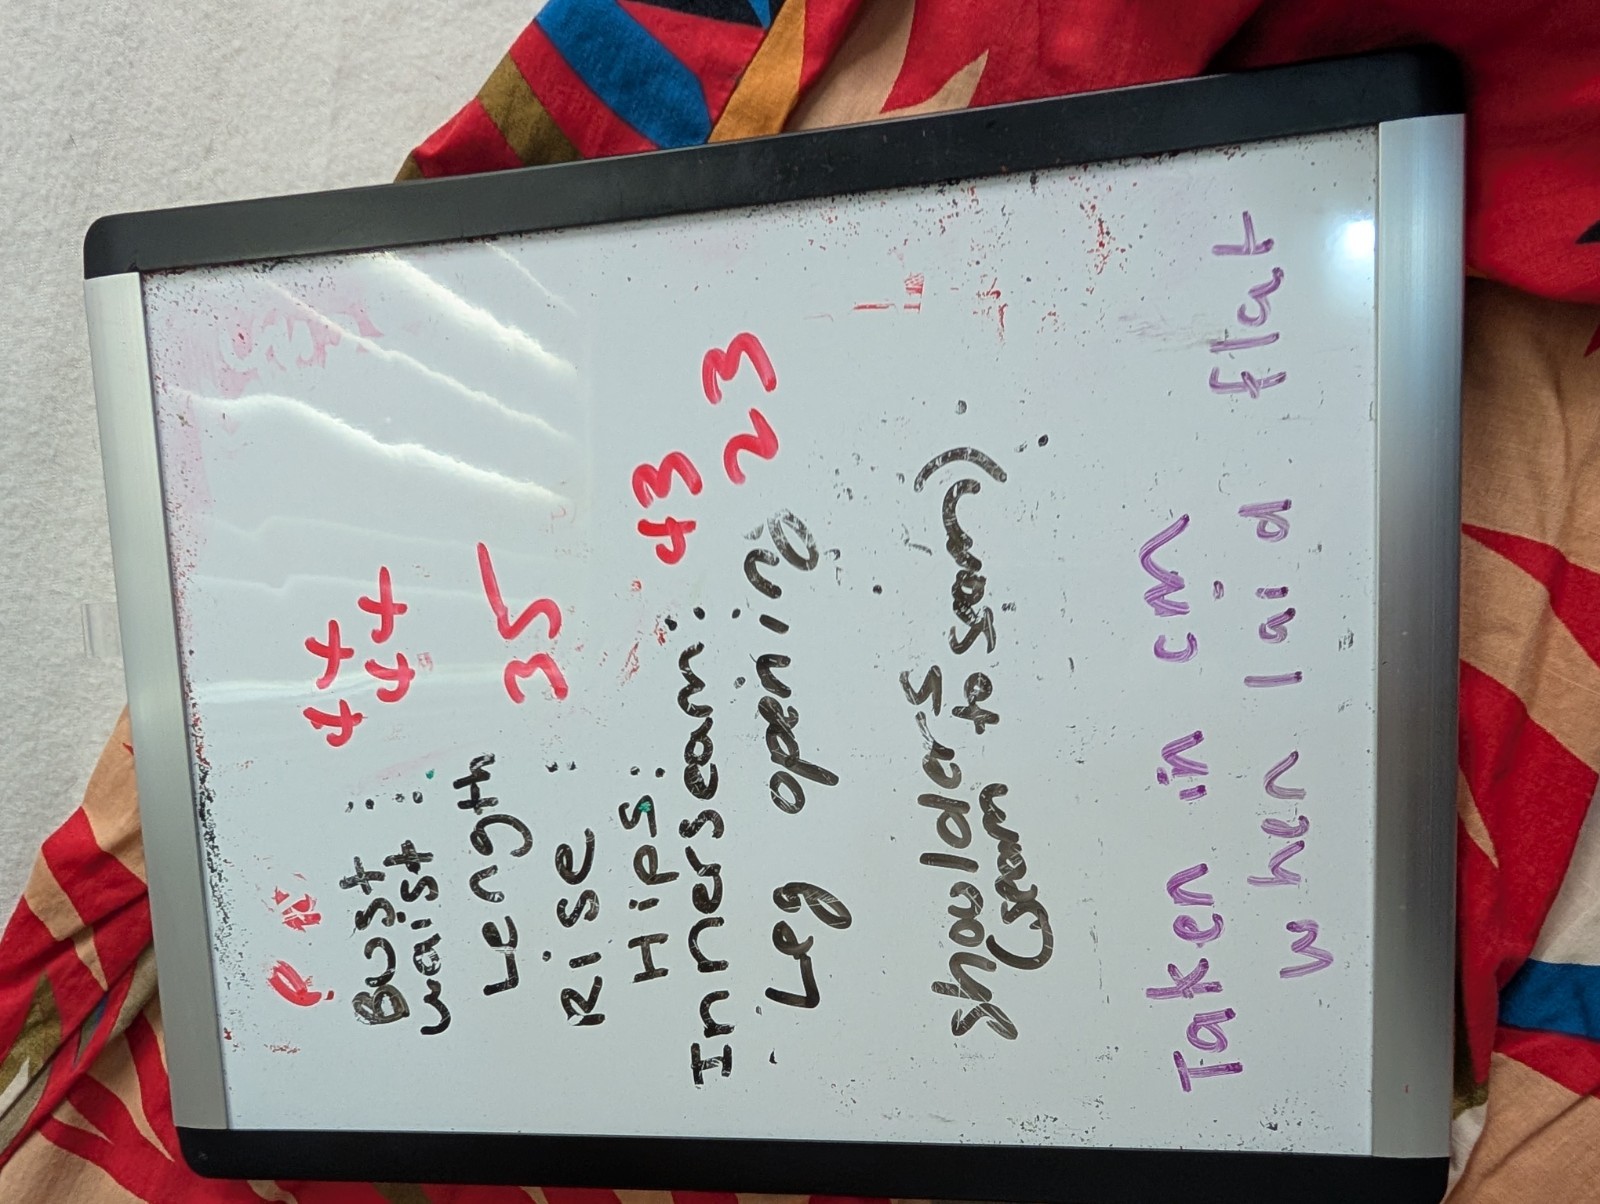 Bust : 44
waist : 44
Length
Rise : 35
Hips:
Innerseam: 43
Leg opening 23
shoulders
(seam to seam)
Taken in cm
when laid flat